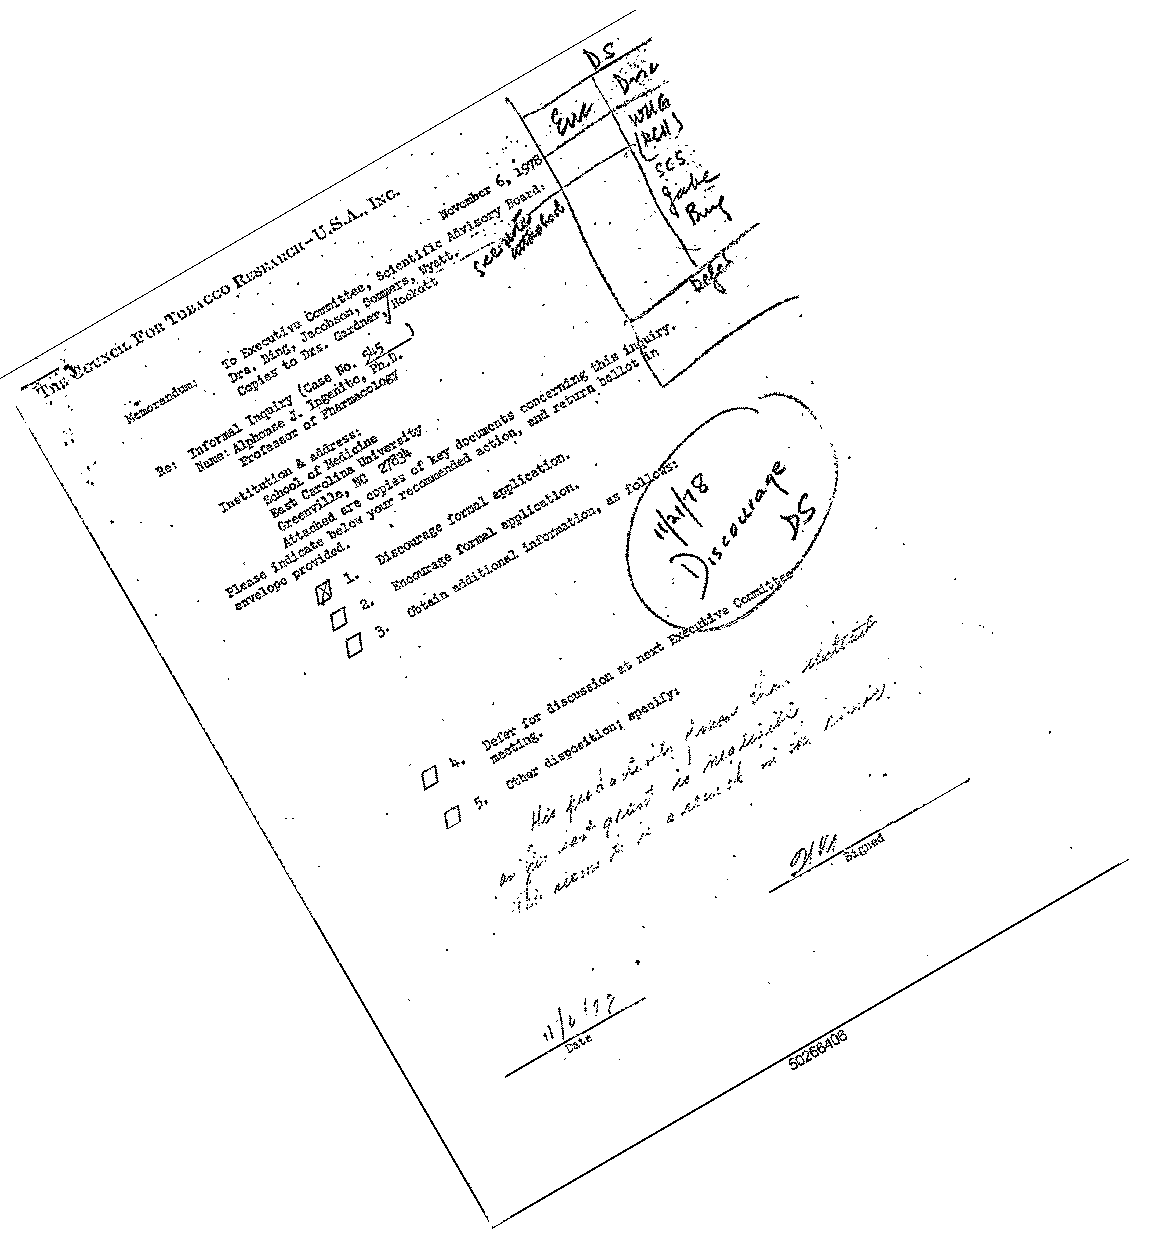 DS
Disc
WUG
SCS
Bing
THE COUNCIL FOR TOBACCO RESEARCH—U.S.A., INC.
November 6, 1978
Memorandum: To Executive Committee, Scientific Advisory Board.
Drs. Bing, Jacobson, Sommers, Wyatt.
Copies to Drs. Gardner, Hockett
see note attached
Re: Informal Inquiry (Case No. 545)
Name: Alphonse J. Ingenito, Ph.D.
Professor of Pharmacology
Institution & address:
School of Medicine
East Carolina University
Greenville, NC 27834
Attached are copies of key documents concerning this inquiry.
Please indicate below your recommended action, and return ballot in
envelope provided.
1. Discourage formal application.
2. Encourage formal application.
3. Obtain additional information, as follows:
11/21/78
Discourage
DS
4. Defer for discussion at next Executive Committee
meeting.
5. Other disposition; specify:
His productivity from
grant is negligible
Signed
Date
50266406